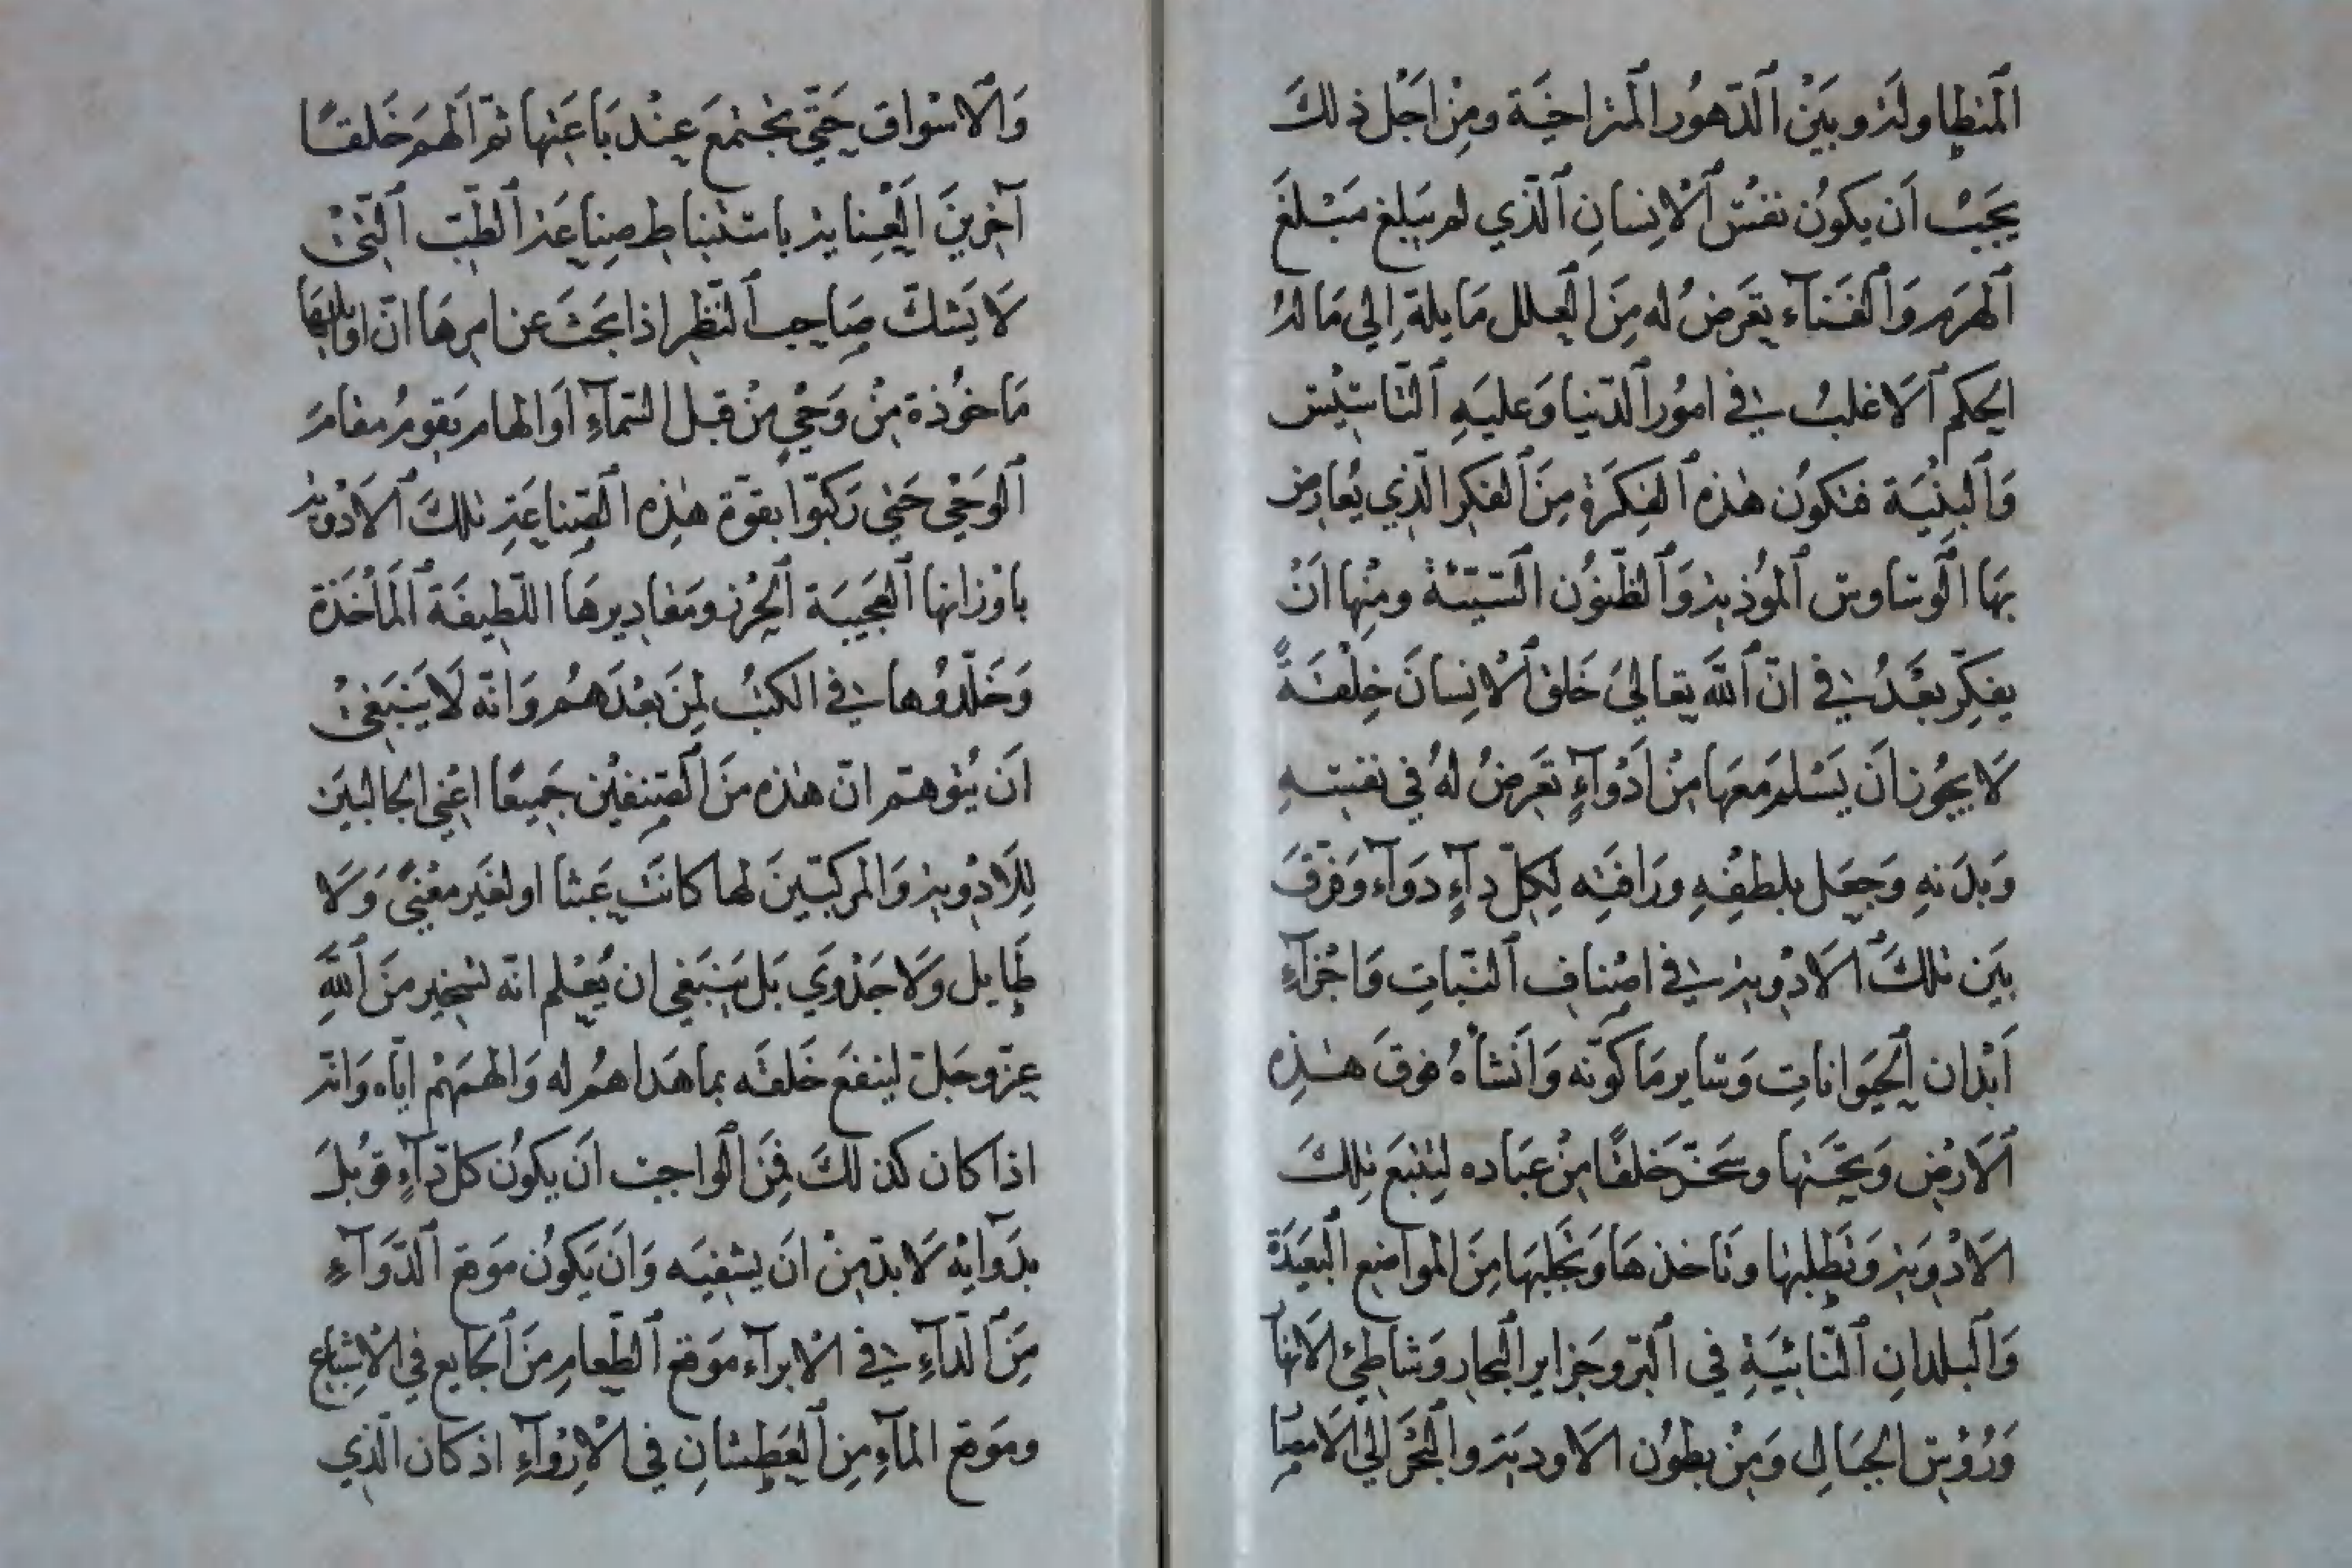 المتطاولة وبَيْنَ الدّهوُر المتراخيَة ومِنْ اجَل ذلكَ
يجَبْ اَن يكوُن نفسُ الانِسانِ الّذي لم يبَلغ مبَلغَ
الهرَم وَالفَناَء يعَرضُ له مِنَ العِلل مَا يلة اِلي مَا لهُ
الحكم الاَغلبُ في امُور الدّنيا وَعليَهِ التّاسيْس
وَالبنْيَة فتكوُن هٰذه الفِكرَة مِنَ الفكِر الّذي يُعارض
بهَا الوسَاوس المؤُذية وَالظنّوُن السَّيّئة ومنْها اَنْ
يفكِّر بعَدُ في انّ اللهَ تعَالىَ خَلق الانِسانَ خِلقةً
لاَ يجوُز اَن يَسْلم مَعهَا مِنْ اَدْوآءٍ تعَرضُ لهُ في نفسِهِ
وَبدَنهِ وَجعَل بلطفِهِ ورَافتِه لِكلّ دآءٍ دَوآء وَفرّقَ
بيَن تلكَ الاَدْوية في اصْناف النّبَاتِ وَاجْزآءِ
اَبْدان الحيَوَاناتِ وَسَاير مَا كوّنه وَاَنشأهُ فوقَ هٰذِه
الاَرضِ وَتحَتها وسَخّر خَلقًا مِنْ عبَاده لتِتبعَ تلكَ
الاَدْويَة وَتطَلبها وتَاخذهَا وَتجَلبهَا مِنَ المواضِع البعَيَدة
وَالبلدانِ النّائيَةِ في البّر وجَزاير البحار وَشاطئِ الانهَار
وَرُؤسِ الجبَالِ وَمِنْ بطوُن الاَوديَة والبحْرَ الي الامَصار
وَالاَسْواق حَتّي يَجْتمعَ عِنْد بَاعَتها ثمّ الهمَ خَلقًا
آخرينَ العِناية باستنبْاط صِناعَة الطّبّ الّتيْ
لاَ يَشكّ صَاحِب النّظر اذا بحَثَ عن امرهَا انّ اوايلهَا
مَاخوُذة مِنْ وَحْي مِنْ قبل السّمآءِ اَو الهام يقَومُ مقامَ
الوَحْي حَتي ركّبوُا بقوّة هٰذِه الصّناعَةِ تلكَ الاَدْوية
باوْزانها العجَيبَة الحِرْز ومَقاديرهَا اللّطيفَة المَأخَذة
وَخَلّدوُها في الكتبُ لِمنَ بعْدَهمُ وَانّه لاَ يَنبَغيْ
اَن يُتوهّم انّ هٰذه منَ الصّنِفَيْن جَميعًا اعْني الجالبيَن
للِاَدْوية وَالمركّبيَنَ لها كانتَْ عَبثا او لغيَر معْنًي وَلاَ
طايل وَلا جَدْوَي بَل يَنبَغي ان يُعْلم انّه تسْخير منَ اللهِ
عزّوجَلّ لينفعَ خَلقَه بما هَداهمُ له وَالهمَهمْ ايّاه وَانّه
اذا كان كذلكَ فِمنَ الواجبْ اَن يكوُن كلّ دآءٍ قوُبلَ
بدَوايهْ لاَ بدّ مِنْ اَن يشفيَه وَاَن يَكوُن موَقع الدّوَآءِ
مِنَ الدّآءِ في الابرآء موَقع الطّعامِ مِنَ الجايع في الاِشبْاع
وموَقع المآءِ مِن العَطشانِ في الاِرْوآءِ اذ كان الّذي